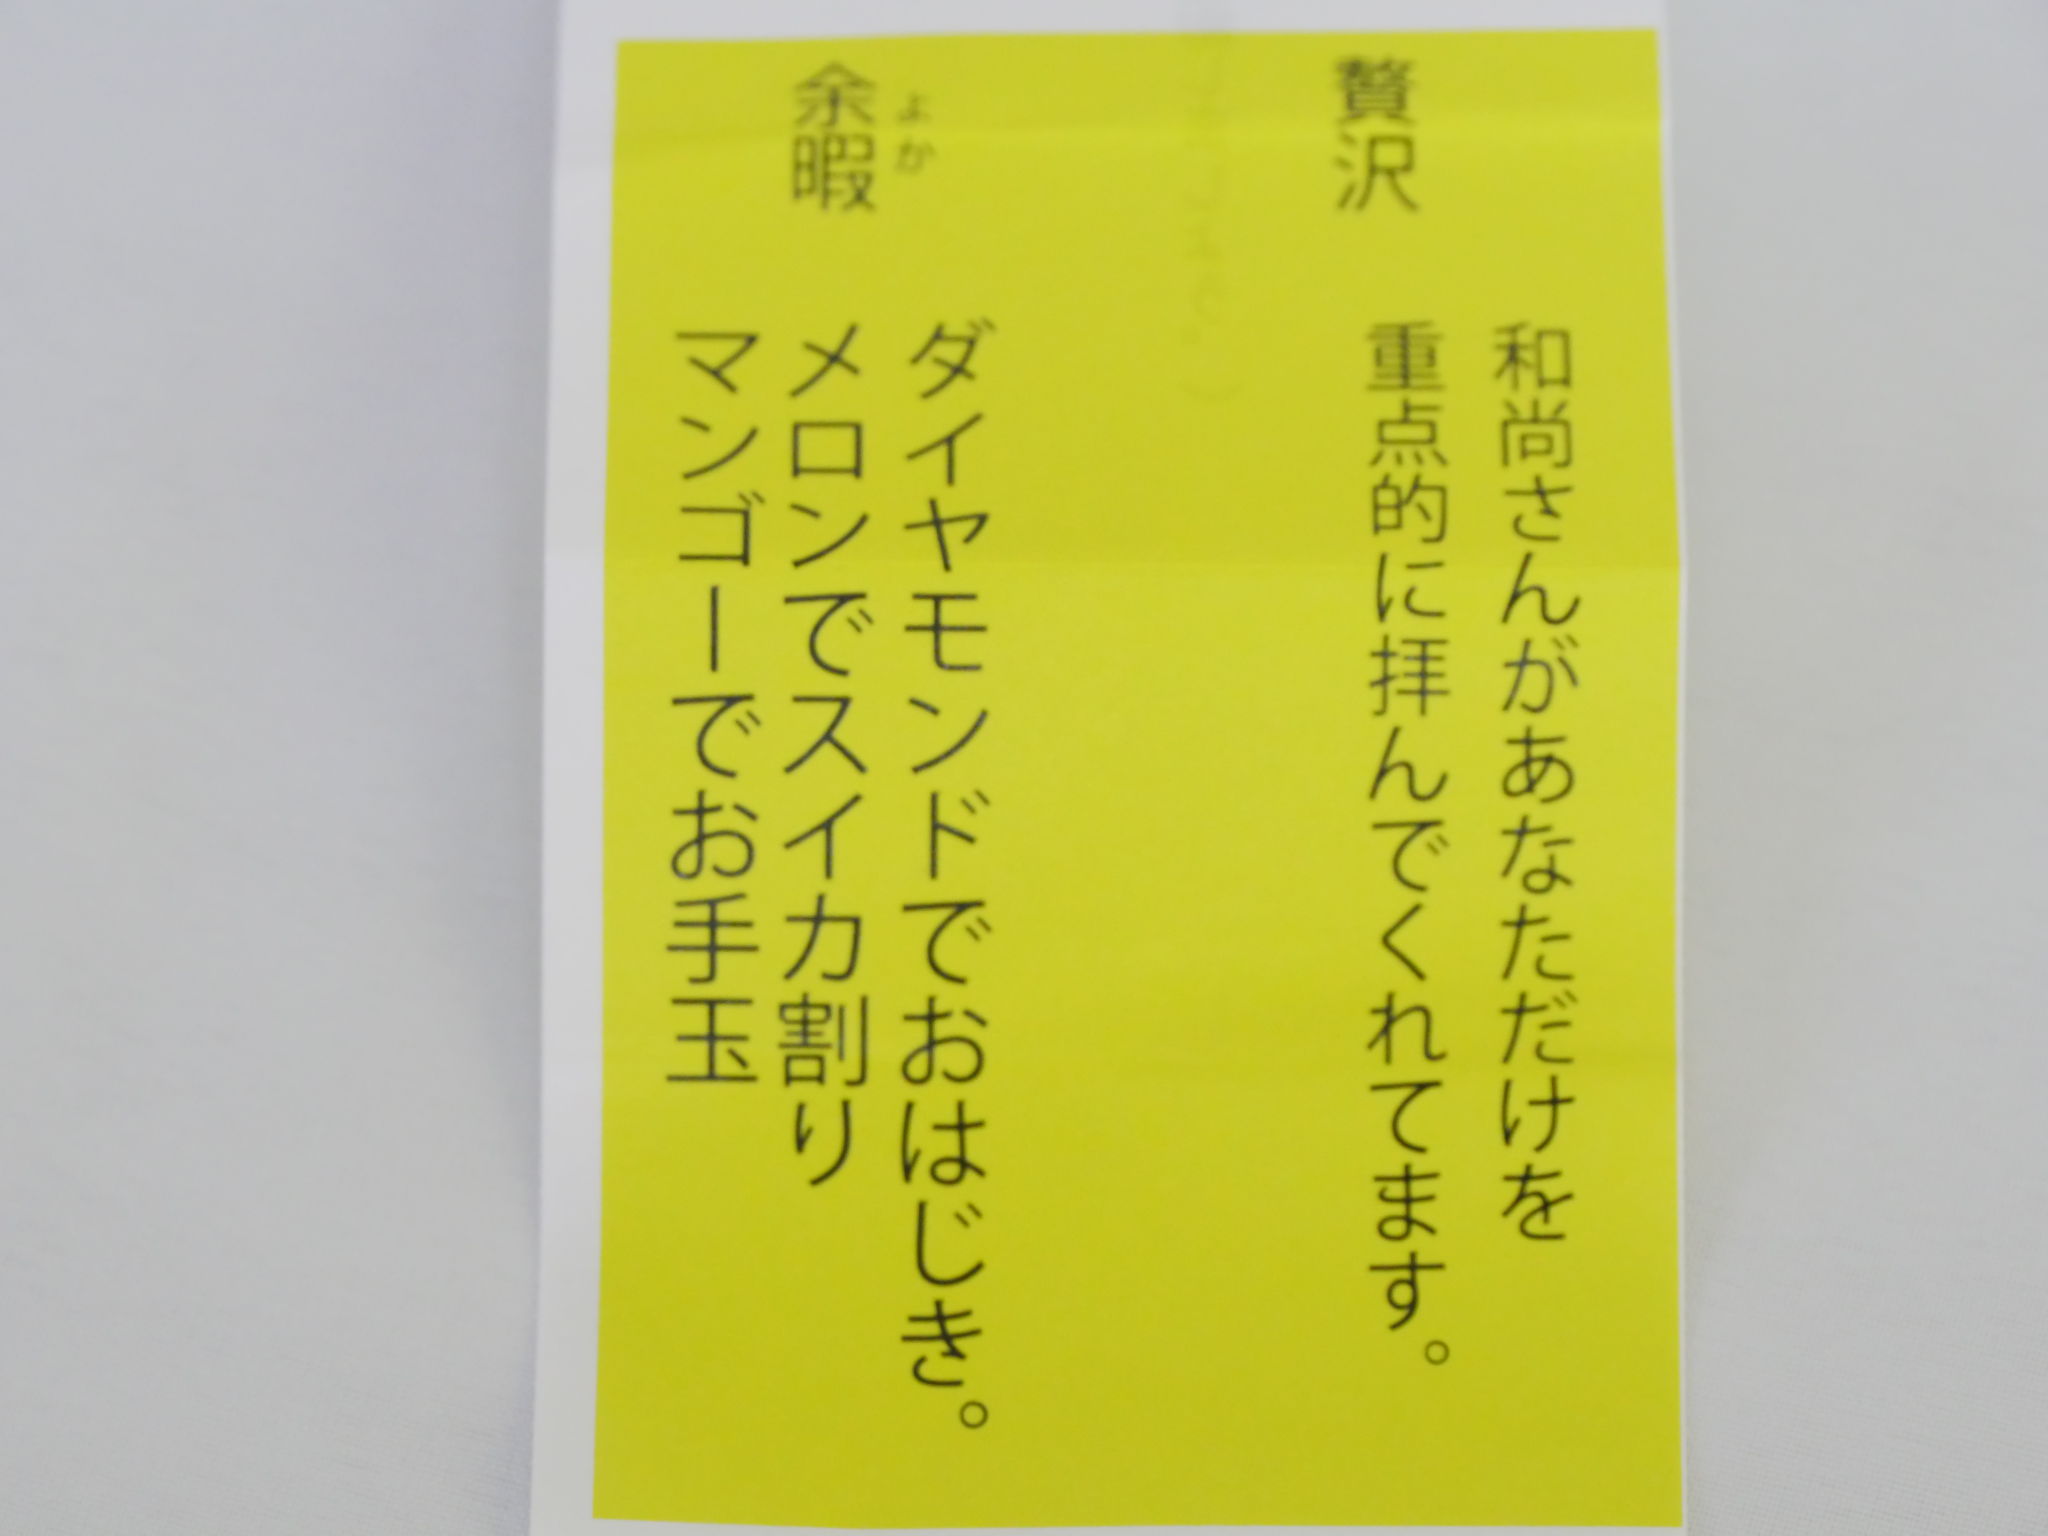 贅沢
和尚さんがあなただけを
重点的に拝んでくれてます。
余暇
よか
ダイヤモンドでおはじき。
メロンでスイカ割り
マンゴーでお手玉